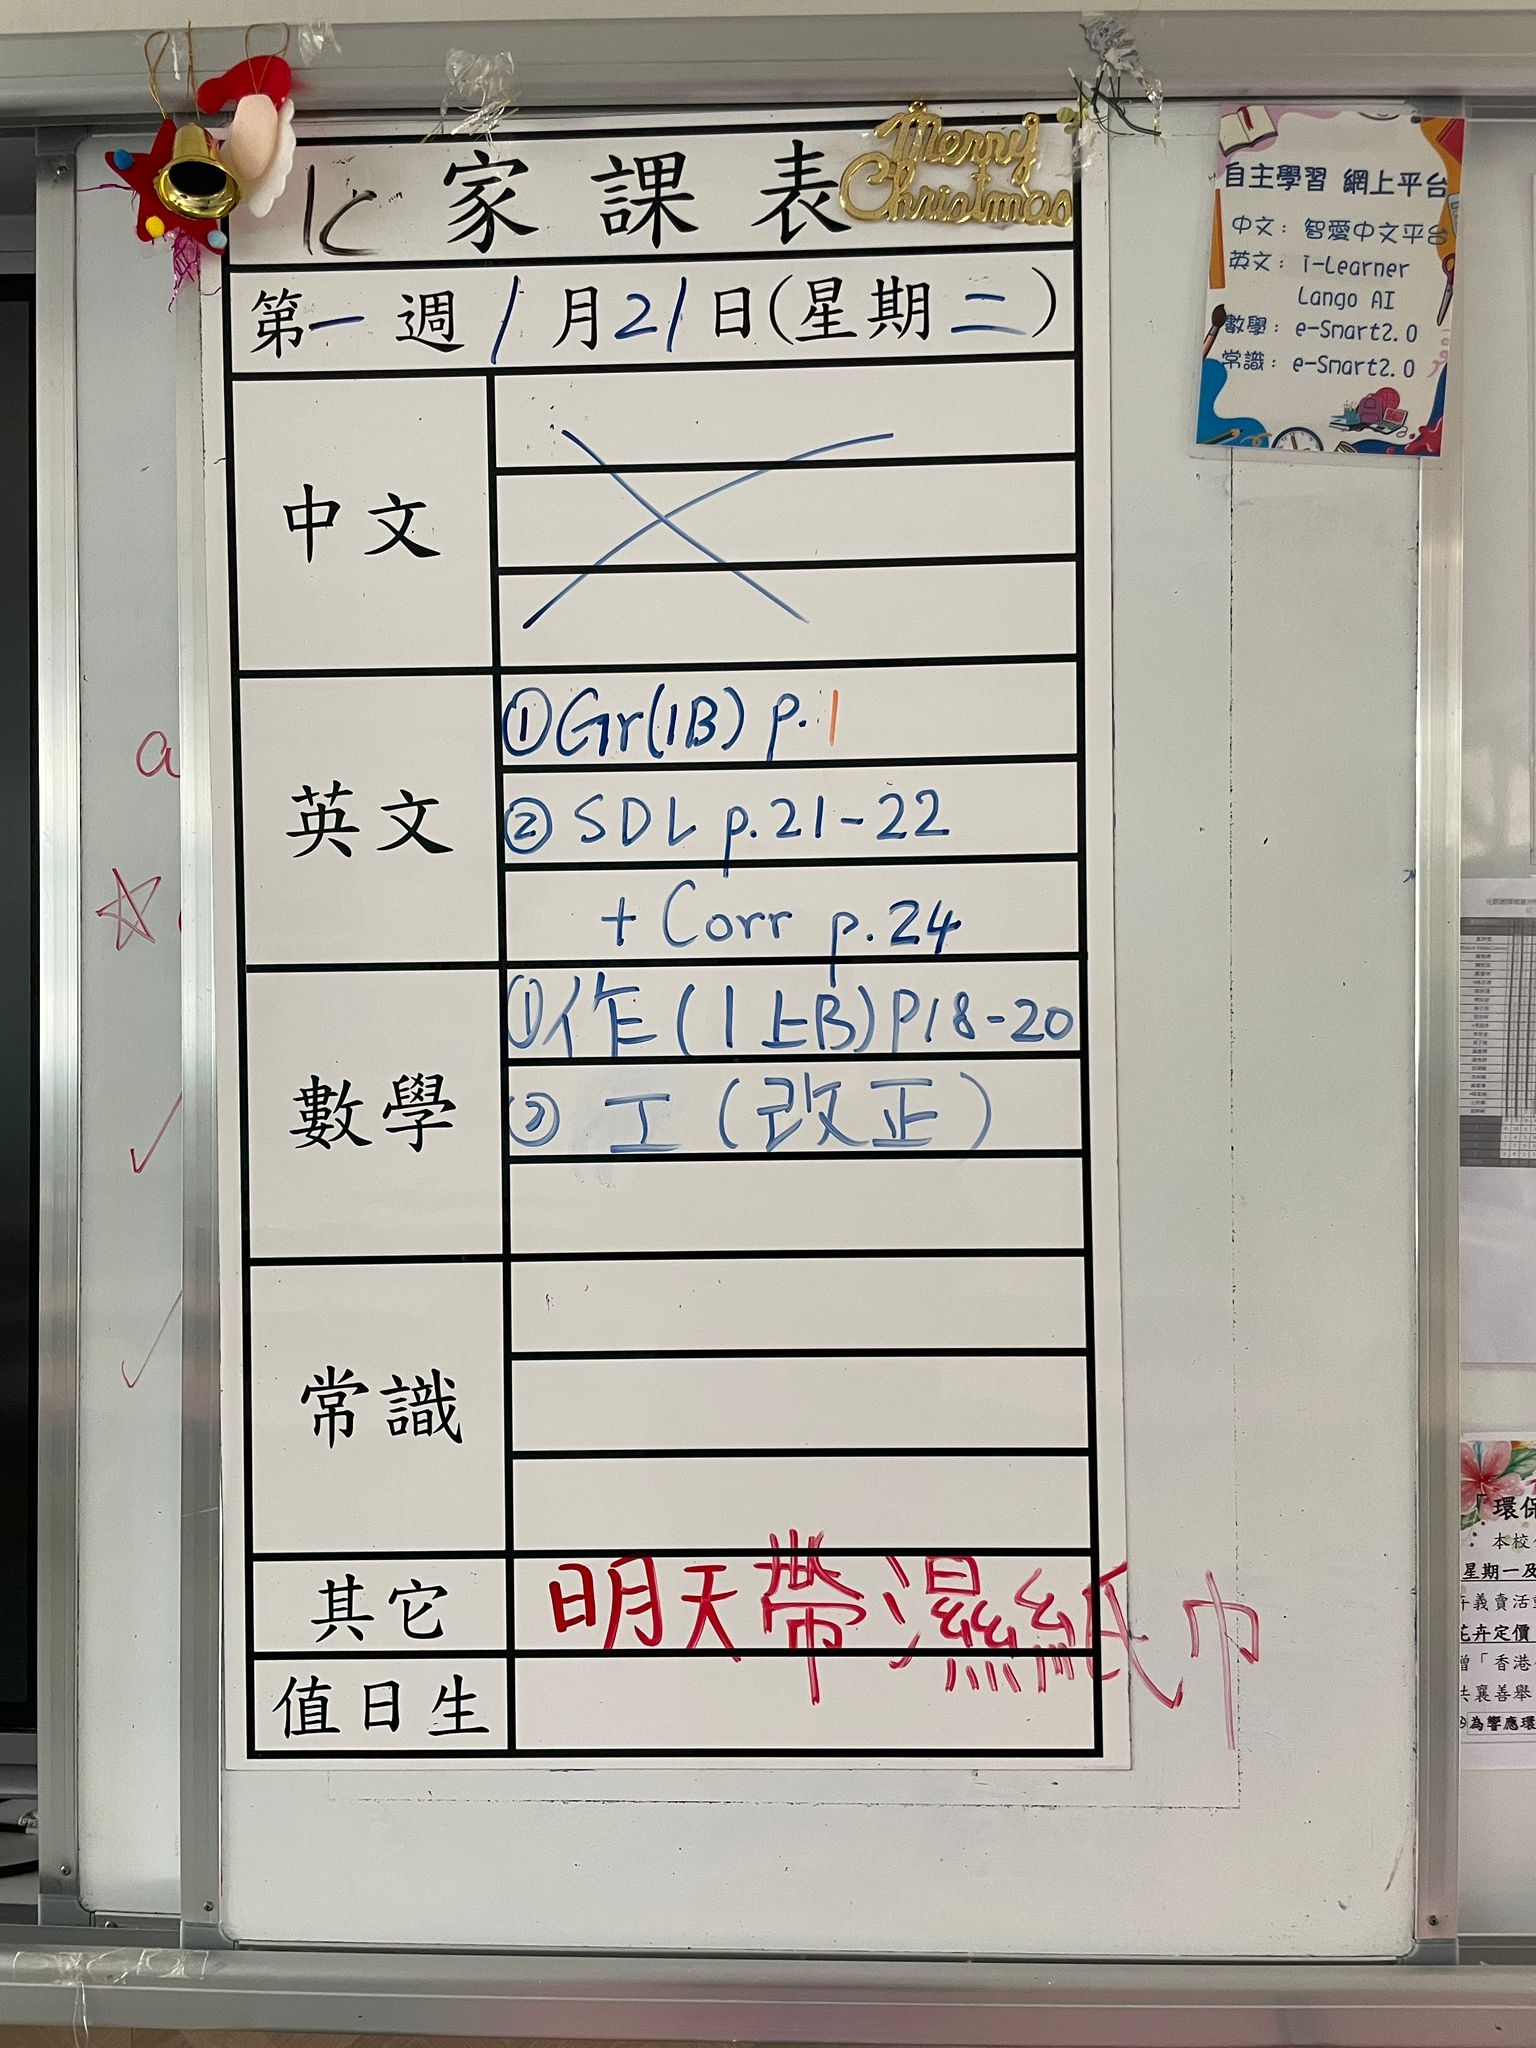 1C 家課表
Merry
Christmas
第一週 1月21日(星期二)
中文
英文
①Gr(1B) p.1
② SDL p.21-22
+ Corr p.24
數學
①作(1上B)P18-20
② 工(改正)
常識
其它
明天帶濕紙巾
值日生
自主學習 網上平台
中文: 智愛中文平台
英文: i-Learner
Lango AI
數學: e-Smart2.0
常識: e-Smart2.0
a
「環保
本校
星期一及
卉義賣活
花卉定價
贈「香港
共襄善舉
為響應環